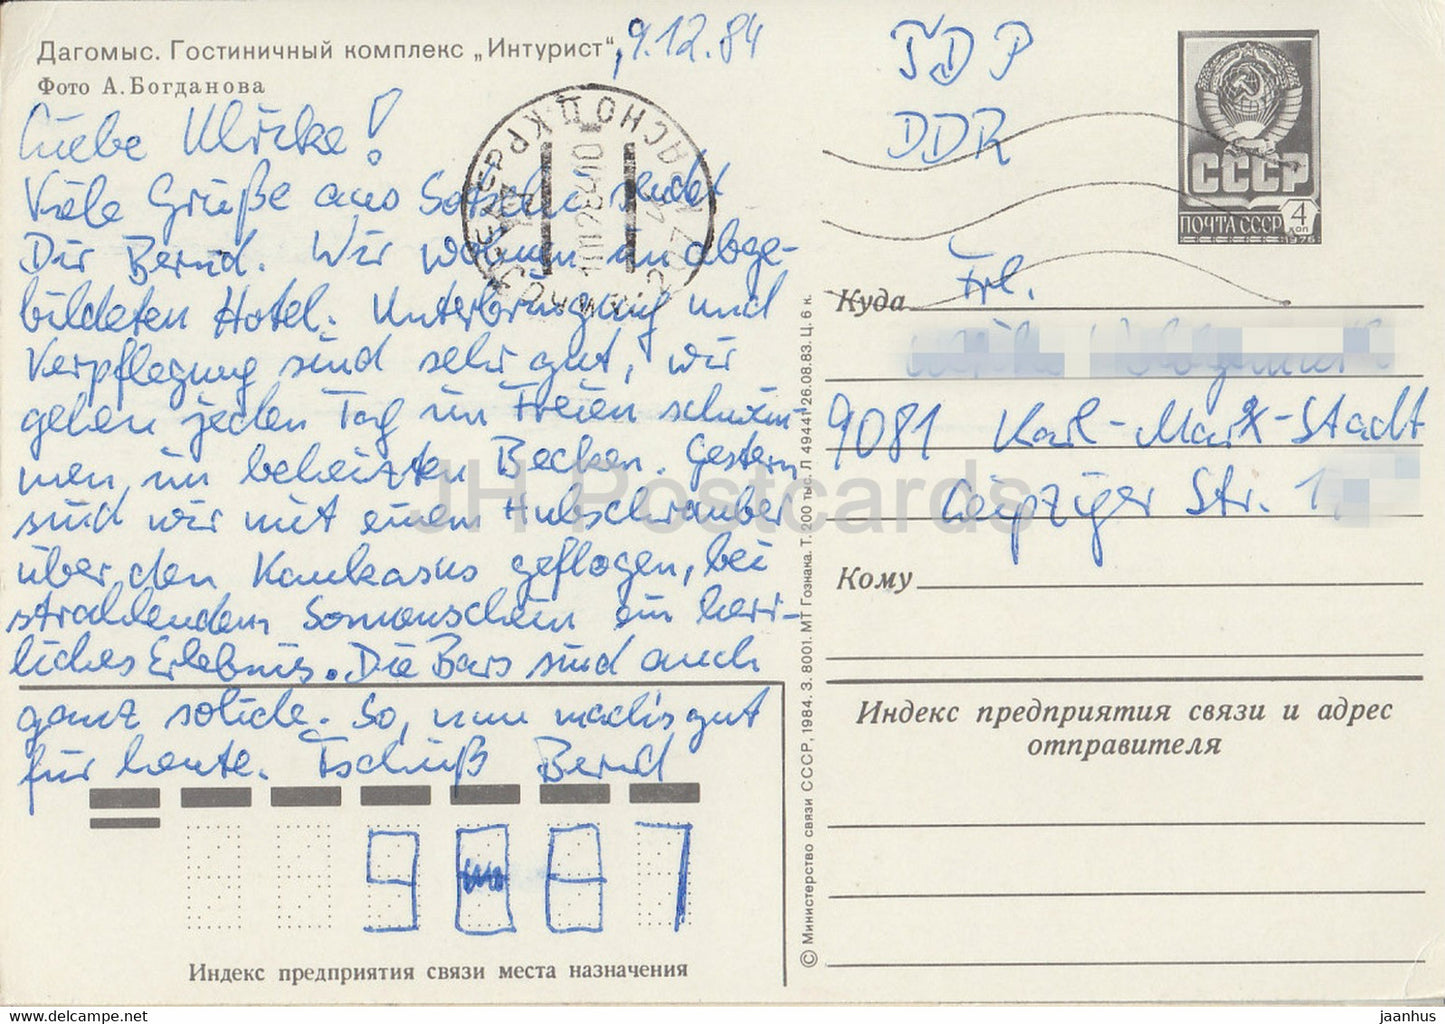 Дагомыс. Гостиничный комплекс „Интурист“, 9.12.84
Фото А. Богданова
Liebe Ulrike!
Viele Grüße aus Sotschi sendet
Dir Bernd. Wir wohnen im abge-
bildeten Hotel. Unterbringung und
Verpflegung sind sehr gut, wir
gehen jeden Tag im Freien schwim-
men, im beheizten Becken. Gestern
sind wir mit einem Hubschrauber
über den Kaukasus geflogen, bei
strahlendem Sonnenschein ein herr-
liches Erlebnis. Die Bars sind auch
ganz solide. So, nun machs gut
für heute. Tschüß Bernd
9081
Индекс предприятия связи места назначения
© Министерство связи СССР, 1984. З. 8001. МТ Гознака. Т. 200 тыс. Л 49441 26.08.83. Ц. 6 к.
ГДР
DDR
СССР
ПОЧТА СССР 4 коп
1976
Куда Frl.
9081 Karl-Marx-Stadt
Leipziger Str. 1
Кому
Индекс предприятия связи и адрес
отправителя
JH Postcards
www.delcampe.net
jaanhus